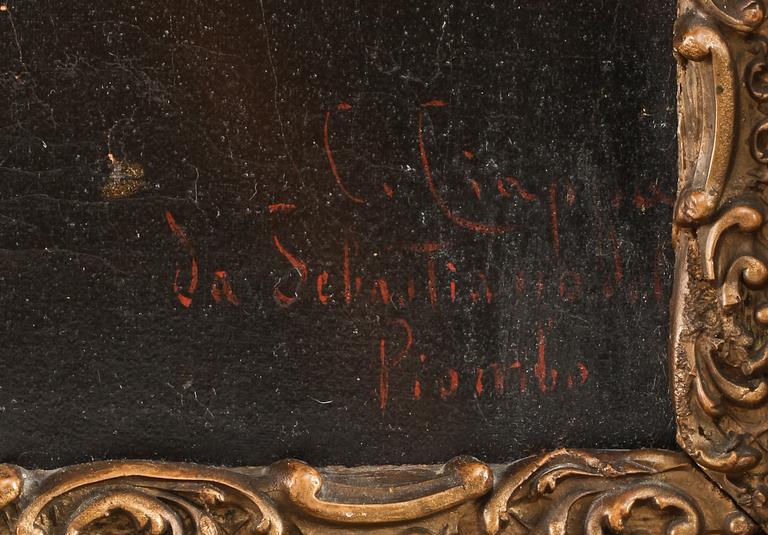 C. Ciappa
da Sebastiano del
Piombo